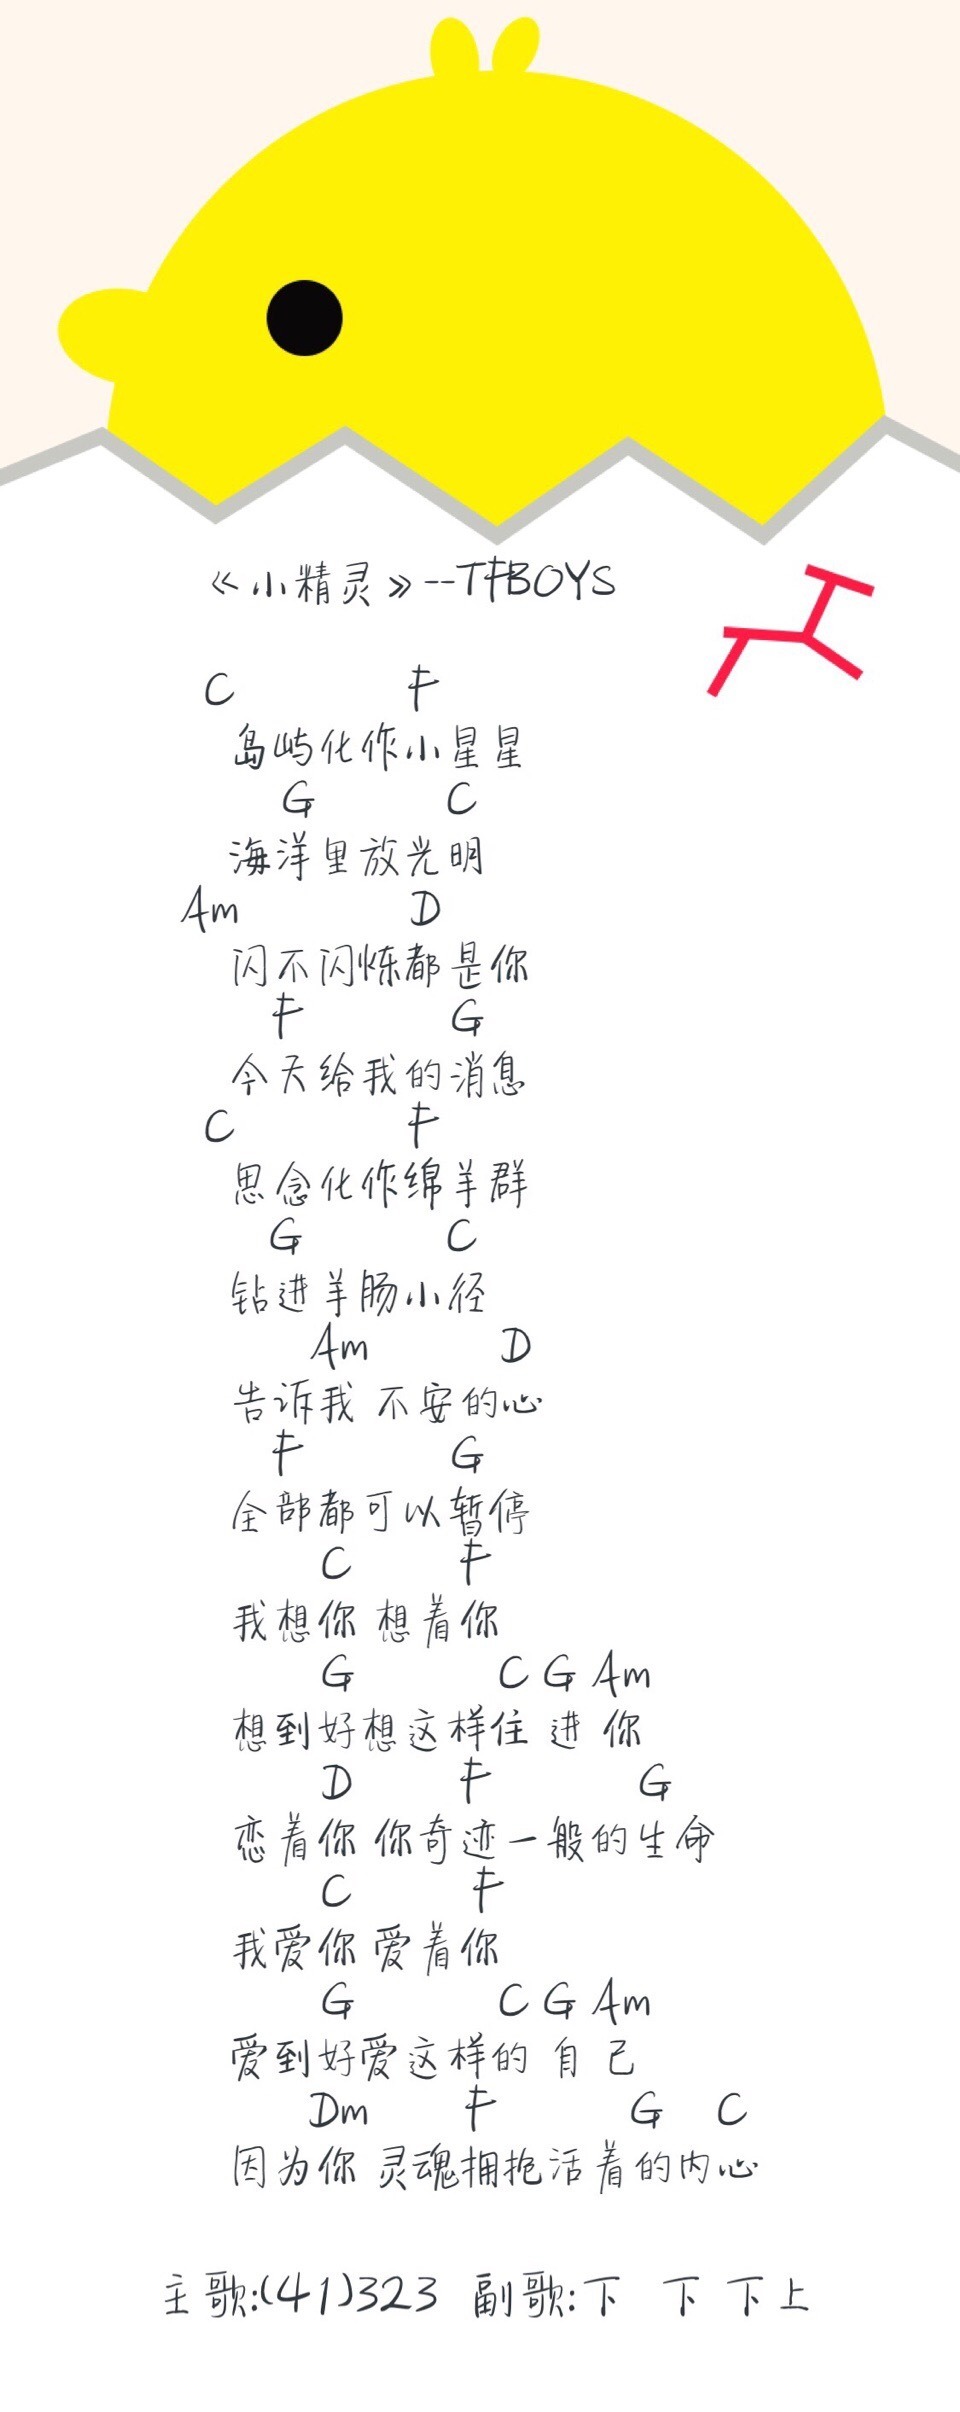 《小精灵》--TFBOYS
C F
岛屿化作小星星
G C
海洋里放光明
Am D
闪不闪烁都是你
F G
今天给我的消息
C F
思念化作绵羊群
G C
钻进羊肠小径
Am D
告诉我 不安的心
F G
全部都可以暂停
C F
我想你 想着你
G C G Am
想到好想这样住 进 你
D F G
恋着你 你奇迹一般的生命
C F
我爱你 爱着你
G C G Am
爱到好爱这样的 自 己
Dm F G C
因为你 灵魂拥抱活着的内心
主歌:(41)323 副歌:下 下 下上